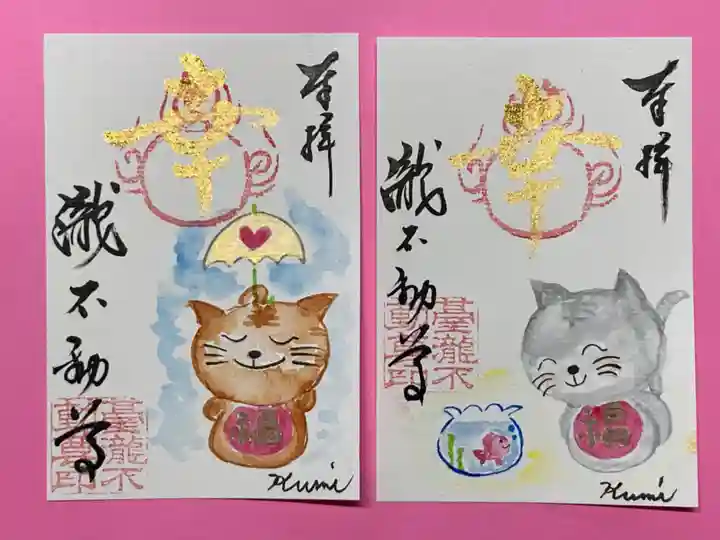 奉拝
幸
瀧不動尊
臺瀧不
動尊印
福
Kumi
奉拝
幸
瀧不動尊
臺瀧不
動尊印
福
Kumi